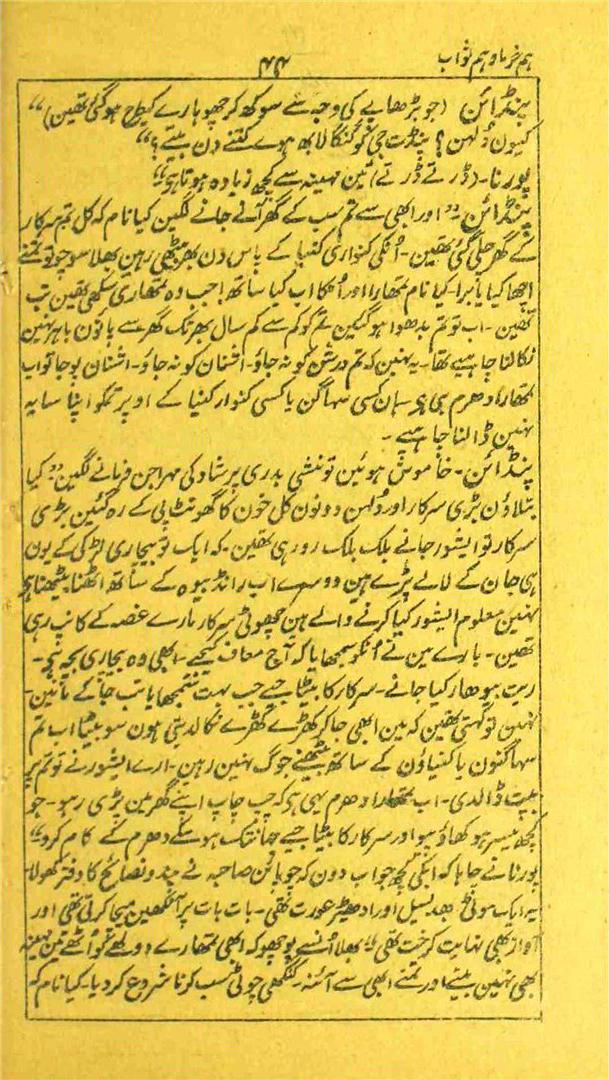 ہم خرما و ہم ثواب
۴۴
پنڈرائن (جو بڑھاپے کی وجہ سے سوکھ کر چھوہارے کیطرح ہوگئی تھین)“
کیون دُلہن؟ پنڈت جی کو گنگا لابھ ہوے کتنے دن بیتے؟“
پورنا۔ (ڈرتے ڈرتے) تین مہینہ سے کچھ زیادہ ہوتا ہے“
پنڈرائن ”اور ابھی سے تم سب کے گھر آنے جانے لگین کیا نام کہ کل تم سرکار
کے گھر چلی گئی تھین۔ اُنکی کنواری کنیا کے پاس دن بھر بیٹھی رہین بھلا سوچو تو تمنے
اچھا کیا یا برا۔ کیا نام تمھارا اور اُنکا اب کیا ساتھ! جب وہ تمھاری سکھی تھین تب
تھین۔ اب تو تم بدھوا ہوگئین تم کو کم سے کم سال بھر تک گھر سے پاؤن باہر نہین
نکالنا چاہیے تھا۔ یہ نہین کہ تم درشن کو نہ جاؤ۔ اشنان کو نہ جاؤ۔ اشنان پوجا تو اب
تمھارا دھرم ہی ہی۔ ہان کسی سہاگن یا کسی کنوار کنیا کے اوپر تمکو اپنا سایہ
نہین ڈالنا چاہیے۔
پنڈائن۔ خاموش ہوئین تو منشی بدری پرشاد کی مہراجن فرمانے لگین ”کیا
بتلاؤن بڑی سرکار اور دُلہن دونون کل خون کا گھونٹ پی کے رہ گئین بڑی
سرکار تو ایشور جانے بلک بلک رو رہی تھین۔ کہ ایک تو بیچاری لڑکی کے یون
ہی جان کے لالے پڑے ہین دوسرے اب رانڈ بیوہ کے ساتھ اٹھنا بیٹھنا ہو
نہین معلوم ایشور کیا کرنے والے ہین چھوٹی سرکار مارے غصہ کے کانپ رہی
تھین۔ بارے مین نے اُنکو سمجھایا کہ آج معاف کیجیے۔ ابھی وہ بیچاری بچہ ہی۔
ریت بیوھار کیا جانے۔ سرکار کا بیٹا جیے جب بہت سمجھایا تب جاکے مانین۔
نہین تو کہتی تھین کہ مین ابھی جاکر کھڑے کھڑے نکالدیتی ہون سو بیٹا اب تم
سہاگنون یا کنیاؤن کے ساتھ بیٹھنے جوگ نہین رہین۔ ارے ایشور نے تو تم پر
بپت ڈالدی۔ اب تمھارا دھرم یہی ہی کہ چپ چاپ اپنے گھر مین پڑی رہو۔ جو
کچھ میسر ہو کھاؤ پیو اور سرکار کا بیٹا جیے جہانتک ہوسکے دھرم کے کام کرو“
پورنا نے چاہا کہ ابکی کچھ جواب دون کہ چوبائن صاحبہ نے پند و نصائح کا دفتر کھولا۔
یہ ایک موٹی بھدیسل اور ادھیڑ عورت تھی۔ بات بات پر آنکھین میچا کرتی تھی اور
آواز بھی نہایت کرخت تھی ”بھلا اُنسے پوچھو کہ ابھی تمھارے دولھے کو اُٹھے تین مہینہ
بھی نہین بیتے اور تمنے ابھی سے آئنہ۔ کنگھی چوٹی سب کرنا شروع کردیا۔ کیا نام کہ